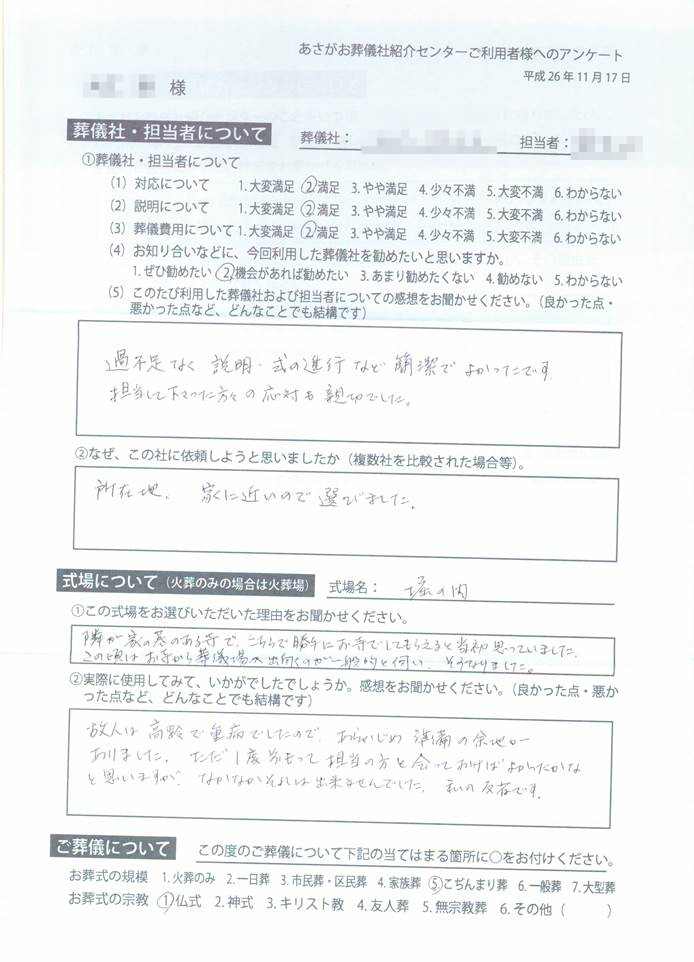 あさがお葬儀社紹介センターご利用者様へのアンケート
平成26年11月17日
様
葬儀社・担当者について 葬儀社： 担当者：
①葬儀社・担当者について
(1) 対応について 1.大変満足 ②満足 3.やや満足 4.少々不満 5.大変不満 6.わからない
(2) 説明について 1.大変満足 ②満足 3.やや満足 4.少々不満 5.大変不満 6.わからない
(3) 葬儀費用について 1.大変満足 ②満足 3.やや満足 4.少々不満 5.大変不満 6.わからない
(4) お知り合いなどに、今回利用した葬儀社を勧めたいと思いますか。
1.ぜひ勧めたい ②機会があれば勧めたい 3.あまり勧めたくない 4.勧めない 5.わからない
(5) このたび利用した葬儀社および担当者についての感想をお聞かせください。（良かった点・
悪かった点など、どんなことでも結構です）
過不足なく 説明・式の進行など 簡潔で よかったです
担当して下さった方々の応対も 親切でした。
②なぜ、この社に依頼しようと思いましたか（複数社を比較された場合等）。
所在地。 家に近いので 選びました。
式場について（火葬のみの場合は火葬場） 式場名： 堀の内
①この式場をお選びいただいた理由をお聞かせください。
隣が家の墓のある寺で、こちらで勝手にお寺でしてもらえると当初思っていました。
この頃はお寺から葬儀場へ出向くのが一般的と伺い、そうなりました。
②実際に使用してみて、いかがでしたでしょうか。感想をお聞かせください。（良かった点・悪か
った点など、どんなことでも結構です）
故人は高齢で重病でしたので、あらかじめ 準備の余地が
ありました。ただ1度 前もって 担当の方と会っておけばよかったかな
と思いますが、なかなかそれは出来ませんでした。私の反省です。
ご葬儀について この度のご葬儀について下記の当てはまる箇所に○をお付けください。
お葬式の規模 1.火葬のみ 2.一日葬 3.市民葬・区民葬 4.家族葬 ⑤こぢんまり葬 6.一般葬 7.大型葬
お葬式の宗教 ①仏式 2.神式 3.キリスト教 4.友人葬 5.無宗教葬 6.その他（ ）